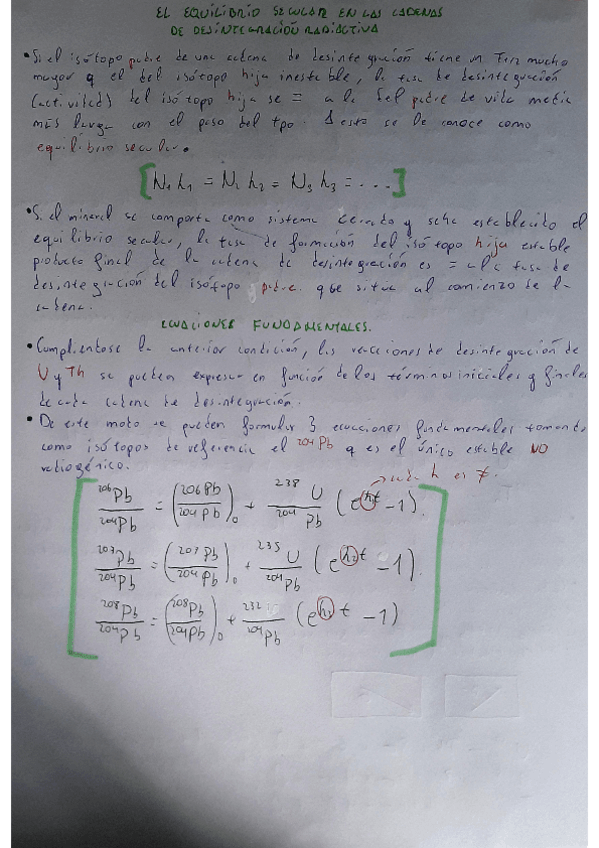 EL EQUILIBRIO SECULAR EN LAS CADENAS
DE DESINTEGRACIÓN RADIACTIVA
• Si el isótopo padre de una cadena de desintegración tiene un T1/2 mucho
mayor q el del isótopo hija inestable, la tasa de desintegración
(actividad) del isótopo hija se = a la del padre de vida media
más larga con el paso del tpo. A esto se le conoce como
equilibrio secular.
[N₁λ₁ = N₂λ₂ = N₃λ₃ = ...]
• Si el mineral se comporta como sistema cerrado y se ha establecido el
equilibrio secular, la tasa de formación del isótopo hija estable
producto final de la cadena de desintegración es = a la tasa de
desintegración del isótopo padre que situa al comienzo de la
cadena.
ECUACIONES FUNDAMENTALES.
• Cumpliéntose la anterior condición, las reacciones de desintegración de
U y Th se pueden expresar en función de los términos iniciales y finales
de cada cadena de desintegración.
• De este modo se pueden formular 3 ecuaciones fundamentales tomando
como isótopos de referencia el ²⁰⁴Pb q es el único estable NO
radiogénico.
→ cada λ es ≠.
²⁰⁶Pb/²⁰⁴Pb = (²⁰⁶Pb/²⁰⁴Pb)₀ + ²³⁸U/²⁰⁴Pb (e^λ₁t - 1).
²⁰⁷Pb/²⁰⁴Pb = (²⁰⁷Pb/²⁰⁴Pb)₀ + ²³⁵U/²⁰⁴Pb (e^λ₂t - 1).
²⁰⁸Pb/²⁰⁴Pb = (²⁰⁸Pb/²⁰⁴Pb)₀ + ²³²/²⁰⁴Pb (e^λ₃t - 1)